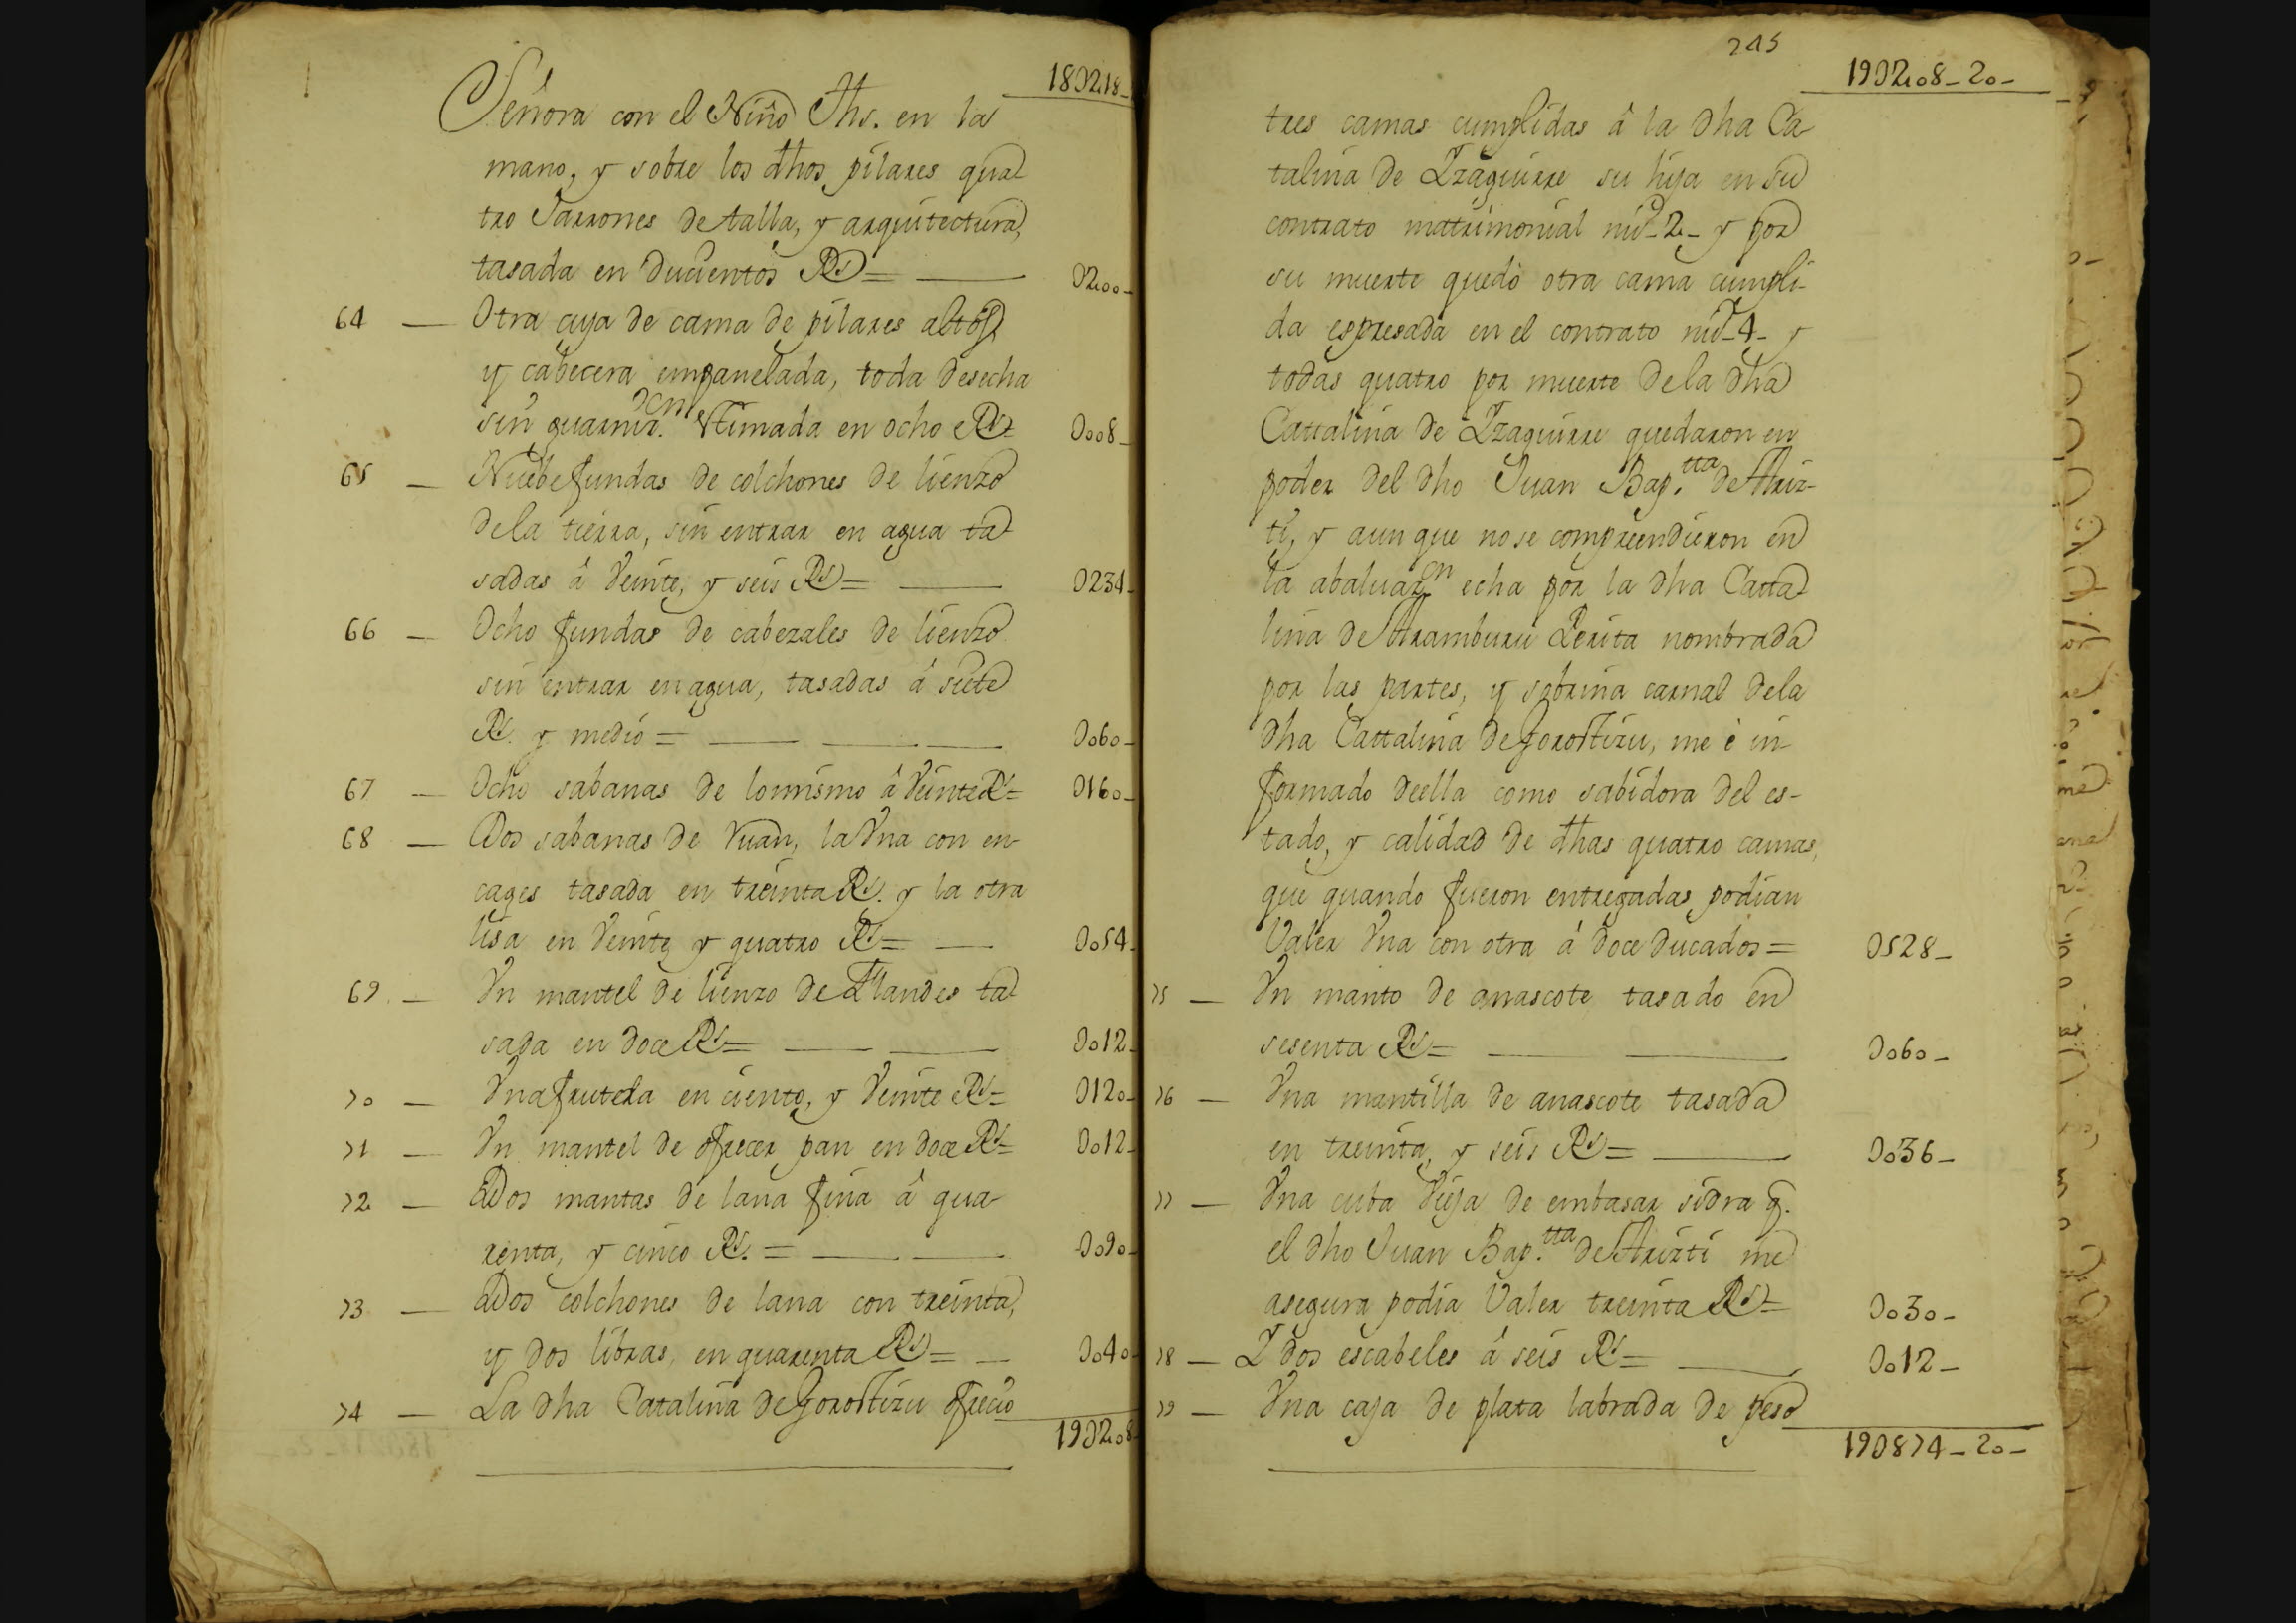 18D218-
Señora con el Niño Jhs. en la
mano, y sobre los dhos pilares qua-
tro Jarrones de talla, y arquitectura,
tasada en ducientos Rs = D200-
64 — Otra cuja de cama de pilares altos,
y cabecera empanelada, toda desecha
sin guarnizon. Estimada en ocho Rs = D008-
65 — Nuebe fundas de colchones de lienzo
de la tierra, sin entrar en agua ta-
sadas â Veinte, y seis Rs = D234-
66 — Ocho fundas de cabezales de lienzo
sin entrar en agua, tasadas â siete
Rs. y medio = D060-
67 — Ocho sabanas de lo mismo â Veinte Rs = D160-
68 — Dos sabanas de Ruan, la Vna con en-
cages tasada en treinta Rs. y la otra
lisa en Veinte y quatro Rs = D054-
69 — Vn mantel de lienzo de Flandes ta-
sada en doce Rs = D012-
70 — Vna frutera en ciento, y Veinte Rs = D120-
71 — Vn mantel de ofrecer pan en doce Rs = D012-
72 — Dos mantas de lana fina â qua-
renta, y cinco Rs. = D090-
73 — Dos colchones de lana con treinta,
y dos libras, en quarenta Rs = D040-
74 — La dha Catalina de Gorostizu ofrecio
19D208-
245
19D208-20-
tres camas cumplidas â la dha Ca-
talina de Yzaguirre su hija en su
contrato matrimonial nuo-2- y por
su muerte quedò otra cama cumpli-
da espresada en el contrato nuo-4- y
todas quatro por muerte de la dha
Cattalina de Yzaguirre quedaron en
poder del dho Juan Bap.tta de Ariz-
ti, y aun que no se comprendieron en
la abaluazon echa por la dha Catta-
lina de Aramburu Perita nombrada
por las partes, y sobrina carnal de la
dha Cattalina de Gorostizu, me è in-
formado de ella como sabidora del es-
tado, y calidad de dhas quatro camas,
que quando fueron entregadas podian
Valer Vna con otra á doce ducados = D528-
75 — Vn manto de anascote tasado en
sesenta Rs = D060-
76 — Vna mantilla de anascote tasada
en treinta, y seis Rs = D036-
77 — Vna cuba Vieja de embasar sidra q.
el dho Juan Bap.tta de Arizti me
asegura podia Valer treinta Rs = D030-
78 — Y dos escabeles â seis Rs = D012-
79 — Vna caja de plata labrada de peso
19D874-20-